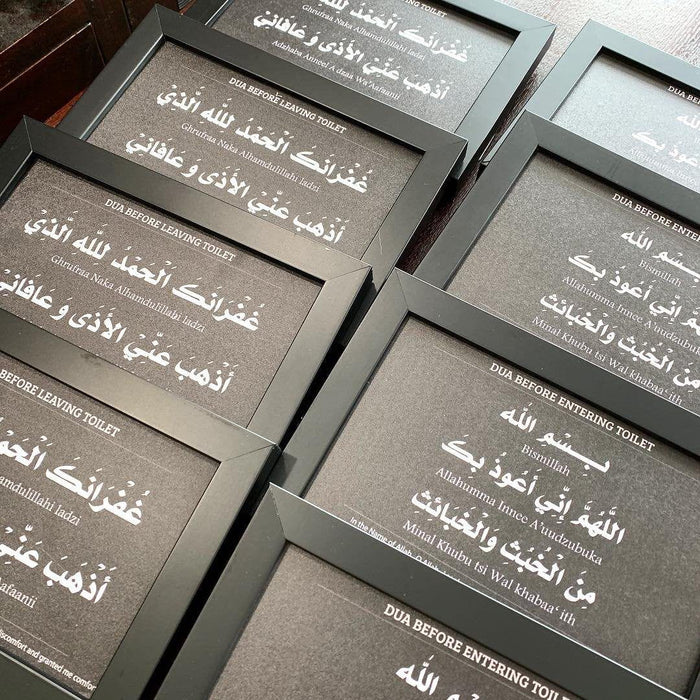 غُفْرَانَكَ الْحَمْدُ لِلَّهِ الَّذِيْ
Ghrufraa Naka Alhamdulillahi ladzi
أَذْهَبَ عَنِّيْ الأَذَى وَ عَافَانِيْ
Adzhaba Anneel A dzaa Wa'Aafaanii
DUA BEFORE LEAVING TOILET
غُفْرَانَكَ الْحَمْدُ لِلَّهِ الَّذِيْ
Ghrufraa Naka Alhamdulillahi ladzi
أَذْهَبَ عَنِّيْ الأَذَى وَ عَافَانِيْ
DUA BEFORE LEAVING TOILET
غُفْرَانَكَ الْحَمْدُ لِلَّهِ الَّذِيْ
Ghrufraa Naka Alhamdulillahi ladzi
أَذْهَبَ عَنِّيْ الأَذَى وَ عَافَانِيْ
BEFORE LEAVING TOILET
غُفْرَانَكَ
amdulillahi ladzi
أَذْهَبَ عَنِّيْ
afaanii
iscomfort and granted me comfor
DUA BEFORE ENTERING
بِسْمِ اللّٰه
Bismillah
اللَّهُمَّ إِنِّي أَعُوذُ بِكَ
Allahumma Innee A'uudzubuka
مِنَ الْخُبُثِ وَالْخَبَائِثِ
Minal Khubu tsi Wal khabaa' ith
DUA BEFORE ENTERING TOILET
بِسْمِ اللّٰه
Bismillah
اللَّهُمَّ إِنِّي أَعُوذُ بِكَ
Allahumma Innee A'uudzubuka
مِنَ الْخُبُثِ وَالْخَبَائِثِ
Minal Khubu tsi Wal khabaa' ith
in the Name of Allah
DUA BEFORE ENTERING TOILET
بِسْمِ اللّٰه